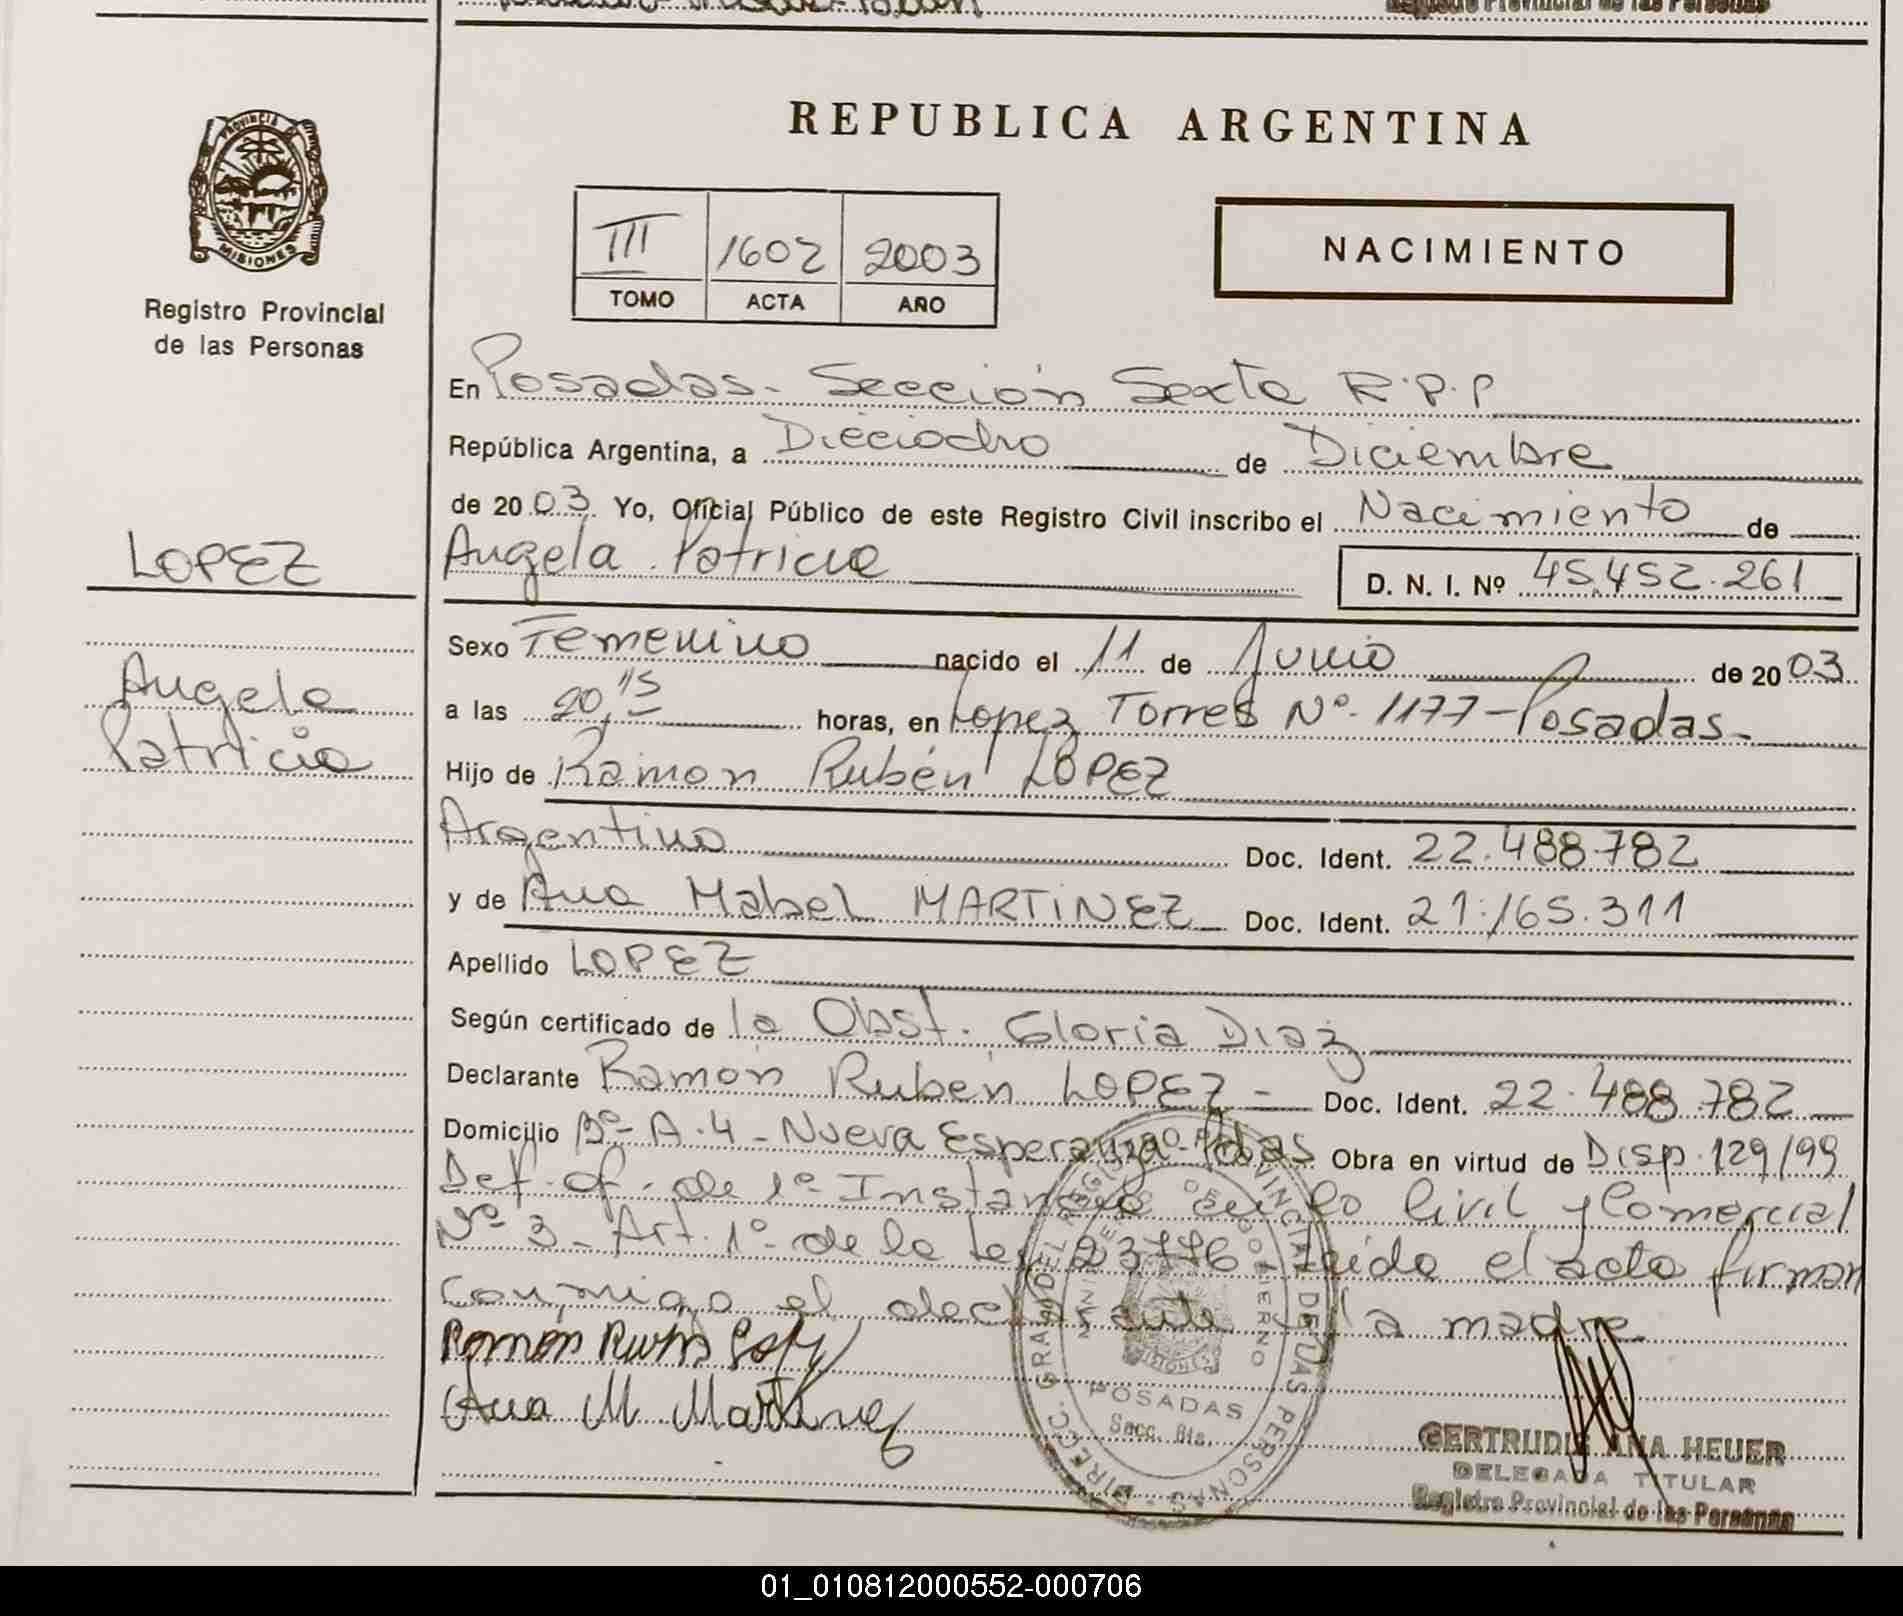 REPUBLICA ARGENTINA
PROVINCIA DE
MISIONES
Registro Provincial
de las Personas
III 1602 2003
TOMO ACTA AÑO
NACIMIENTO
LOPEZ
Angela
Patricia
En Posadas - Sección Sexta R.P.P
República Argentina, a Dieciocho de Diciembre
de 2003. Yo, Oficial Público de este Registro Civil inscribo el Nacimiento de
Angela Patricia D. N. I. Nº 45.452.261
Sexo Femenino nacido el 11 de Junio de 2003
a las 20,15 horas, en Lopez Torres Nº 1177 - Posadas -
Hijo de Ramón Rubén LOPEZ
Argentino Doc. Ident. 22.488.782
y de Ana Mabel MARTINEZ Doc. Ident. 21.165.311
Apellido LOPEZ
Según certificado de la Obst. Gloria Diaz
Declarante Ramón Rubén LOPEZ - Doc. Ident. 22.488.782
Domicilio Bº A.4 - Nueva Esperanza - Pdas Obra en virtud de Disp. 129/99
Def. Of. de 1º Instancia en lo Civil y Comercial
Nº 3 - Art. 1º de la Ley 23776 Leida el acta firman
conmigo el declarante y la madre
Ramón Rubén
Ana M. Martinez
DIRECC. GRAL. DEL REGISTRO PROVINCIAL DE LAS PERSONAS
MINISTERIO DE GOBIERNO
MISIONES
POSADAS
Secc. 6ta.
GERTRUDIS ANA HEUER
DELEGADA TITULAR
Registro Provincial de las Personas
01_010812000552-000706